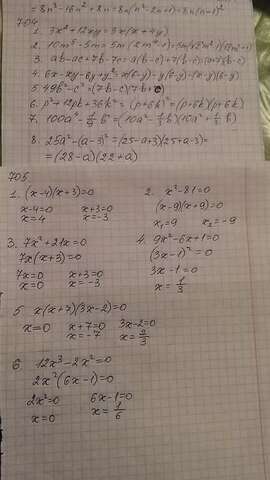 = 8n³-16n²+8n = 8n(n²-2n+1) = 8n(n-1)²
704
1. 3x²+12xy = 3x(x+4y)
2. 10m³-5m = 5m(2m²-1)
3. ab-ac+7b-7c = a(b-c)+7(b-c) = (a+7)(b-c)
4. 6x-xy-6y+y² = x(6-y)-y(6-y) = (x-y)(6-y)
5. 49b²-c² = (7b-c)(7b+c)
6. p²+12pk+36k² = (p+6k)² = (p+6k)(p+6k)
7. 100a⁴-1/9 b² = (10a²-1/3 b)(10a²+1/3 b)
8. 25a²-(a-3)² = (25-a+3)(25+a-3) =
= (28-a)(22+a)
705
1. (x-4)(x+3)=0 2. x²-81=0
x-4=0 x+3=0 (x-9)(x+9)=0
x=4 x=-3 x₁=9 x₂=-9
3. 7x²+21x=0 4. 9x²-6x+1=0
7x(x+3)=0 (3x-1)²=0
7x=0 x+3=0 3x-1=0
x=0 x=-3 x=1/3
5. x(x+7)(3x-2)=0
x=0 x+7=0 3x-2=0
x=-7 x=2/3
6. 12x³-2x²=0
2x²(6x-1)=0
2x²=0 6x-1=0
x=0 x=1/6